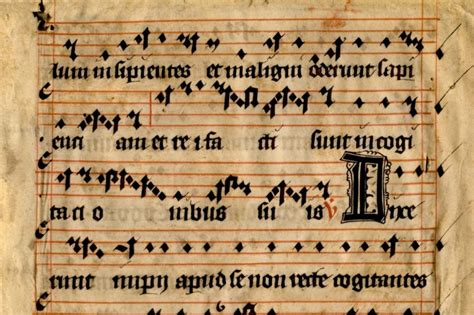 lum insipientes et maligni oderunt sapi
enci am et rei fa cti sunt in cogi
taci o nibus su is ℣ Dixe
runt impii apud se non recte cogitantes